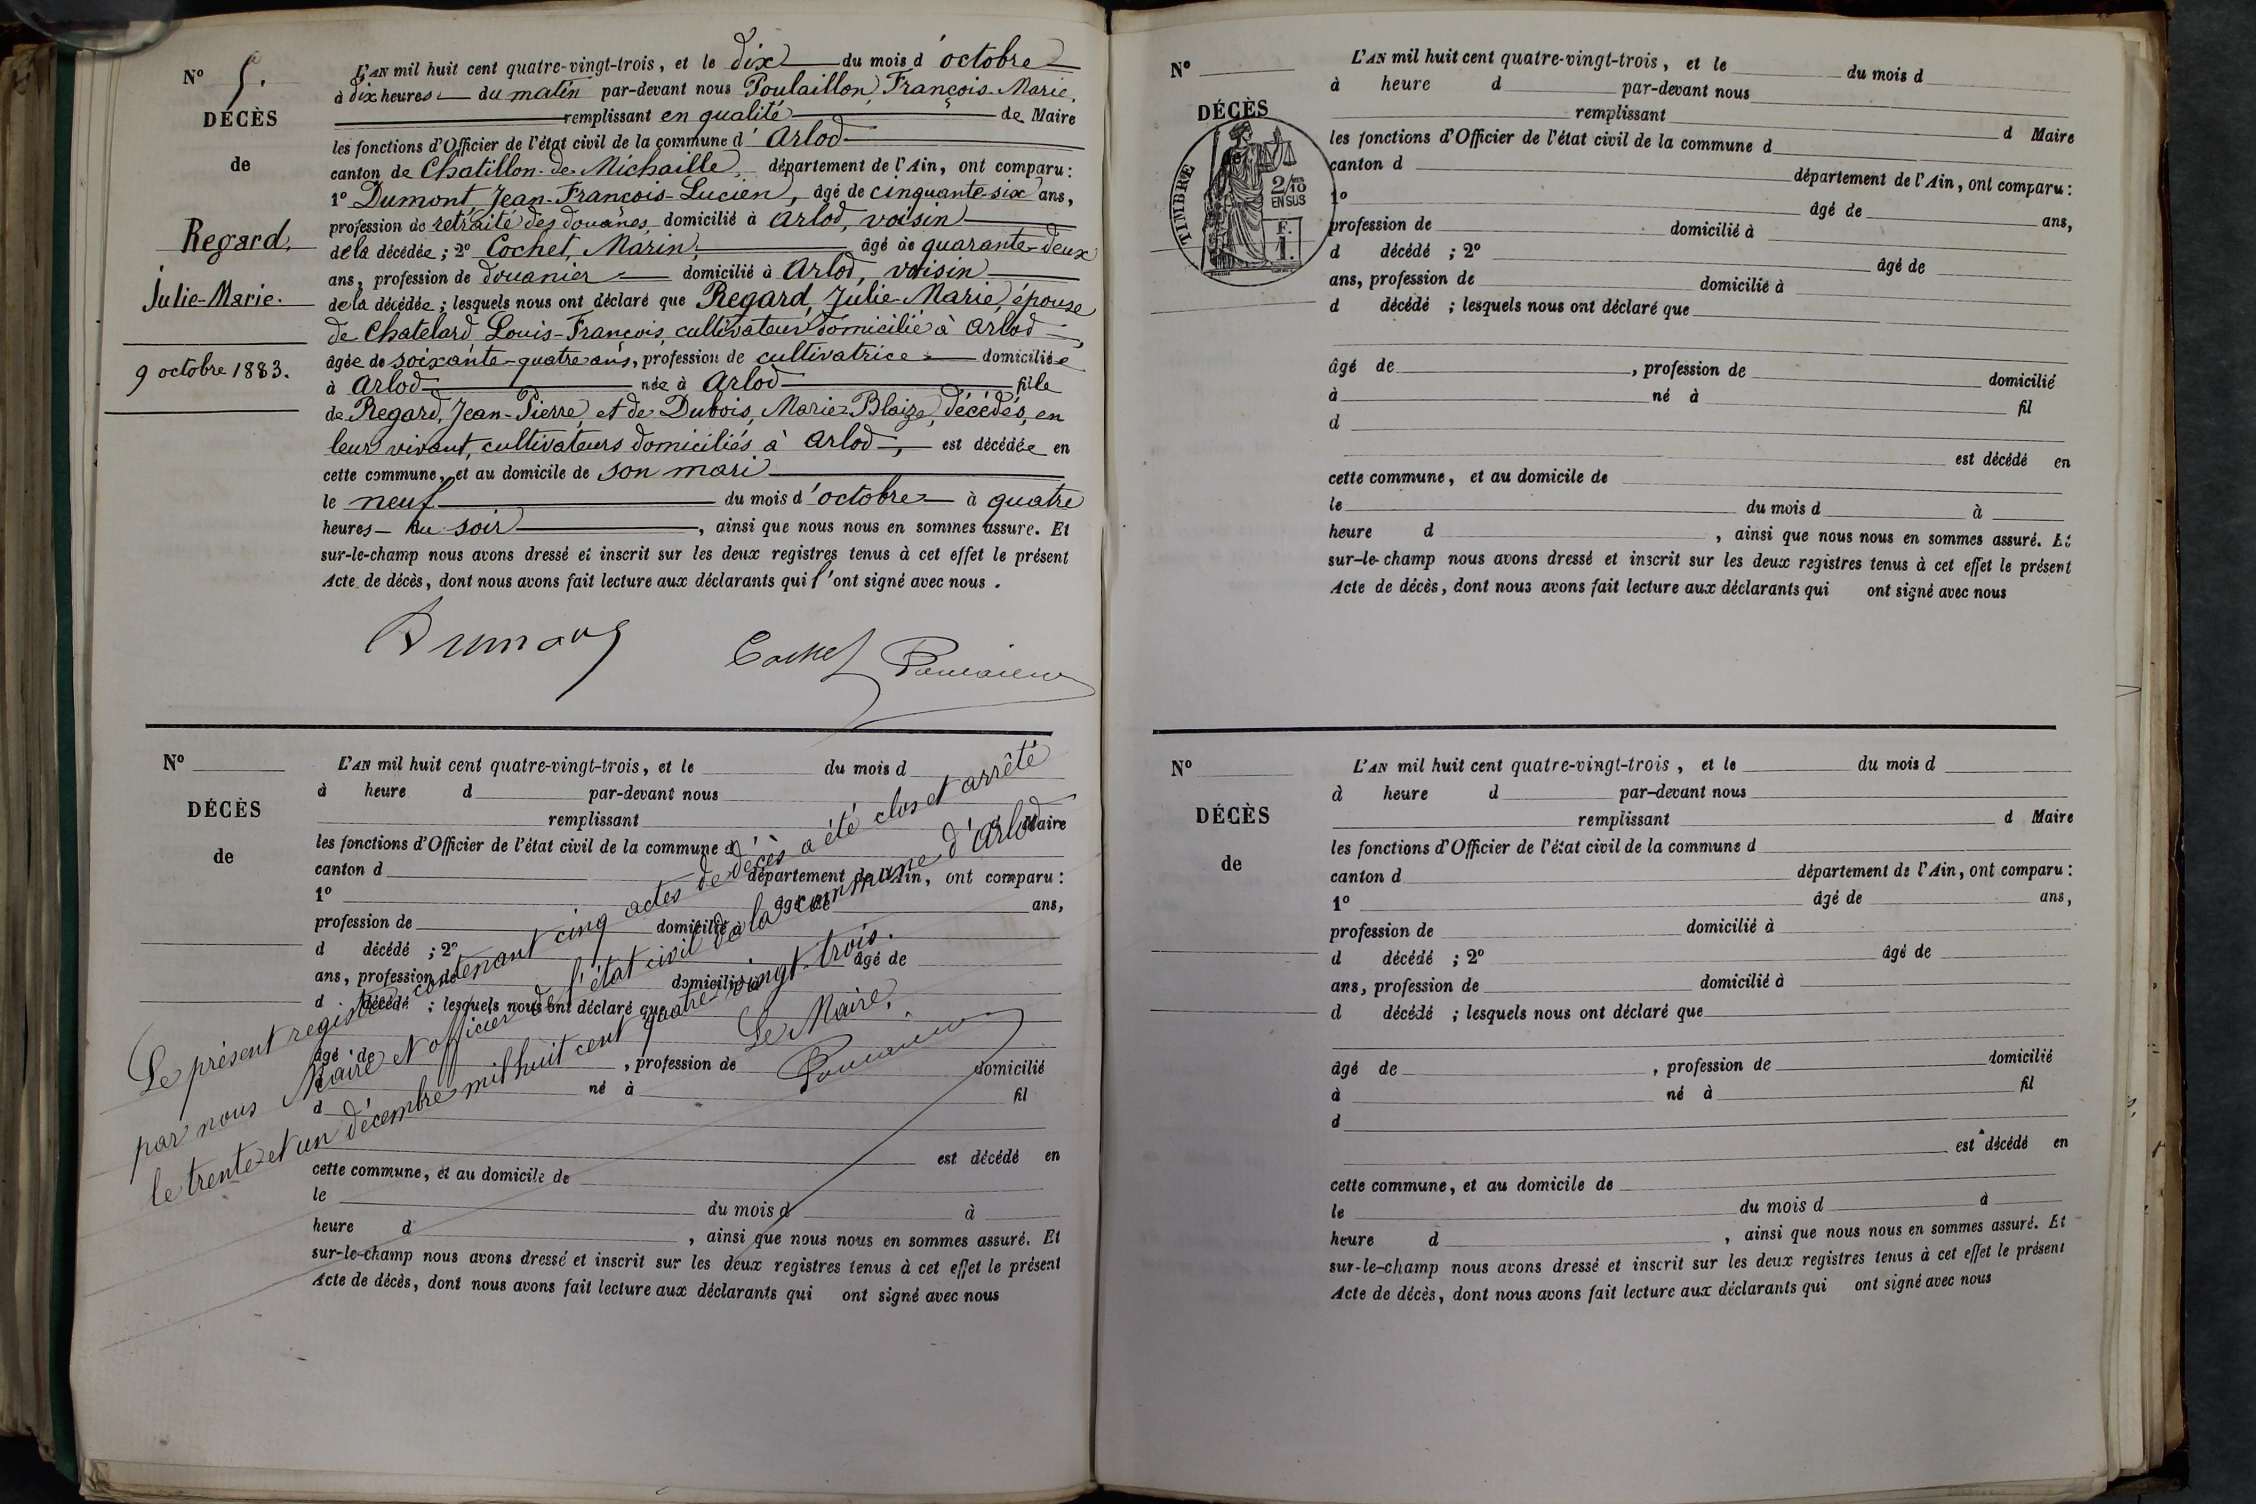 N° 5.
DÉCÈS
de
Regard,
Julie-Marie.
9 octobre 1883.
L'AN mil huit cent quatre-vingt-trois, et le dix du mois d'octobre
à dix heures du matin par-devant nous Poulaillon, François-Marie,
remplissant en qualité de Maire
les fonctions d'Officier de l'état civil de la commune d'Arlod
canton de Chatillon-de-Michaille, département de l'Ain, ont comparu :
1° Dumont, Jean-François-Lucien, âgé de cinquante-six ans,
profession de retraité des douanes domicilié à Arlod, voisin
de la décédée ; 2° Cochet, Marin, âgé de quarante-deux
ans, profession de douanier domicilié à Arlod, voisin
de la décédée ; lesquels nous ont déclaré que Regard, Julie-Marie, épouse
de Chatelard, Louis-François, cultivateur domicilié à Arlod,
âgée de soixante-quatre ans, profession de cultivatrice domiciliée
à Arlod née à Arlod fille
de Regard, Jean-Pierre, et de Dubois, Marie-Blaize, décédés, en
leur vivant, cultivateurs domiciliés à Arlod, est décédée en
cette commune, et au domicile de son mari
le neuf du mois d'octobre à quatre
heures du soir, ainsi que nous nous en sommes assuré. Et
sur-le-champ nous avons dressé et inscrit sur les deux registres tenus à cet effet le présent
Acte de décès, dont nous avons fait lecture aux déclarants qui l'ont signé avec nous.
Dumont Cochet Poulaillon
N°
DÉCÈS
de
L'AN mil huit cent quatre-vingt-trois, et le du mois d
à heure d par-devant nous
remplissant d Maire
les fonctions d'Officier de l'état civil de la commune d
canton d département de l'Ain, ont comparu :
1° âgé de ans,
profession de domicilié à
d décédé ; 2° âgé de
ans, profession de domicilié à
d décédé ; lesquels nous ont déclaré que
âgé de , profession de domicilié
à né à fil
d
est décédé en
cette commune, et au domicile de
le du mois d à
heure d , ainsi que nous nous en sommes assuré. Et
sur-le-champ nous avons dressé et inscrit sur les deux registres tenus à cet effet le présent
Acte de décès, dont nous avons fait lecture aux déclarants qui ont signé avec nous
Le présent registre contenant cinq actes de décès a été clos et arrêté
par nous Maire et officier de l'état civil de la commune d'Arlod
le trente et un décembre mil huit cent quatre-vingt-trois.
Le Maire,
Poulaillon
N°
DÉCÈS
de
TIMBRE
2/10
EN SUS
F.
1.
L'AN mil huit cent quatre-vingt-trois, et le du mois d
à heure d par-devant nous
remplissant d Maire
les fonctions d'Officier de l'état civil de la commune d
canton d département de l'Ain, ont comparu :
1° âgé de ans,
profession de domicilié à
d décédé ; 2° âgé de
ans, profession de domicilié à
d décédé ; lesquels nous ont déclaré que
âgé de , profession de domicilié
à né à fil
d
est décédé en
cette commune, et au domicile de
le du mois d à
heure d , ainsi que nous nous en sommes assuré. Et
sur-le-champ nous avons dressé et inscrit sur les deux registres tenus à cet effet le présent
Acte de décès, dont nous avons fait lecture aux déclarants qui ont signé avec nous
N°
DÉCÈS
de
L'AN mil huit cent quatre-vingt-trois, et le du mois d
à heure d par-devant nous
remplissant d Maire
les fonctions d'Officier de l'état civil de la commune d
canton d département de l'Ain, ont comparu :
1° âgé de ans,
profession de domicilié à
d décédé ; 2° âgé de
ans, profession de domicilié à
d décédé ; lesquels nous ont déclaré que
âgé de , profession de domicilié
à né à fil
d
est décédé en
cette commune, et au domicile de
le du mois d à
heure d , ainsi que nous nous en sommes assuré. Et
sur-le-champ nous avons dressé et inscrit sur les deux registres tenus à cet effet le présent
Acte de décès, dont nous avons fait lecture aux déclarants qui ont signé avec nous